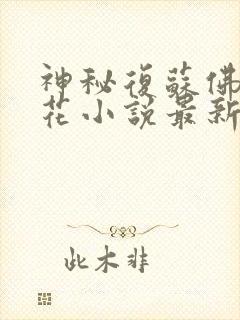 神秘復蘇佛
花小說最新
此木非